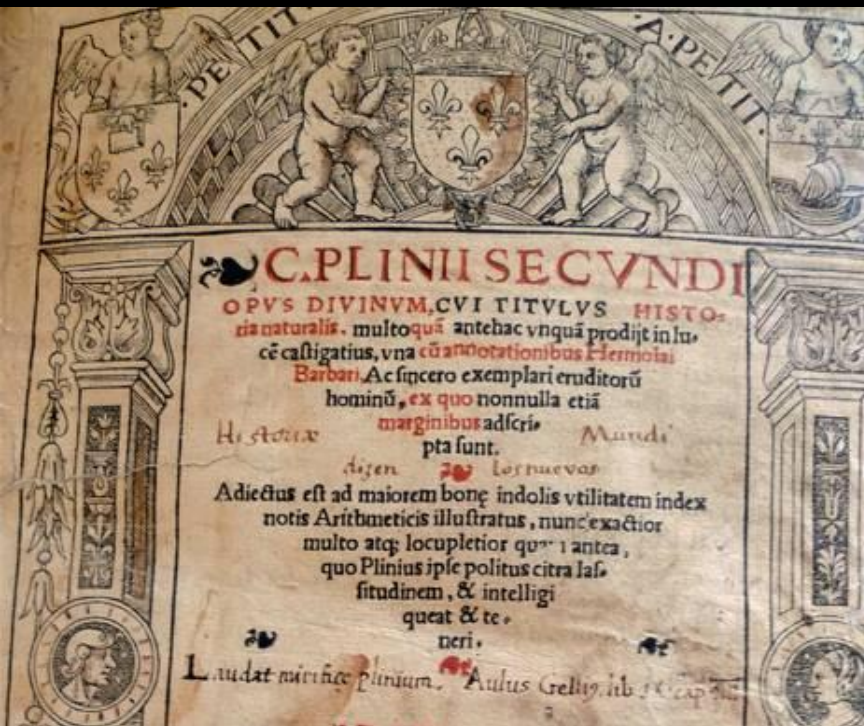 ·PETIT· ·A·PETIT·
C.PLINII SECVNDI
OPVS DIVINVM, CVI TITVLVS HISTO-
ria naturalis. multo quã antehac vnquã prodijt in lu-
cẽ castigatius, vna cũ annotationibus Hermolai
Barbari, Ac sincero exemplari eruditorũ
hominũ, ex quo nonnulla etiã
marginibus adscri-
pta sunt.
Historiæ Mundi
dizen los nuevos
Adiectus est ad maiorem bonę indolis vtilitatem index
notis Arithmeticis illustratus, nunc exactior
multo atq; locupletior antea,
quo Plinius ipse politus citra las-
situdinem, & intelligi
queat & te-
neri.
Laudat mirifice plinium. Aulus Gelliꝰ. lib